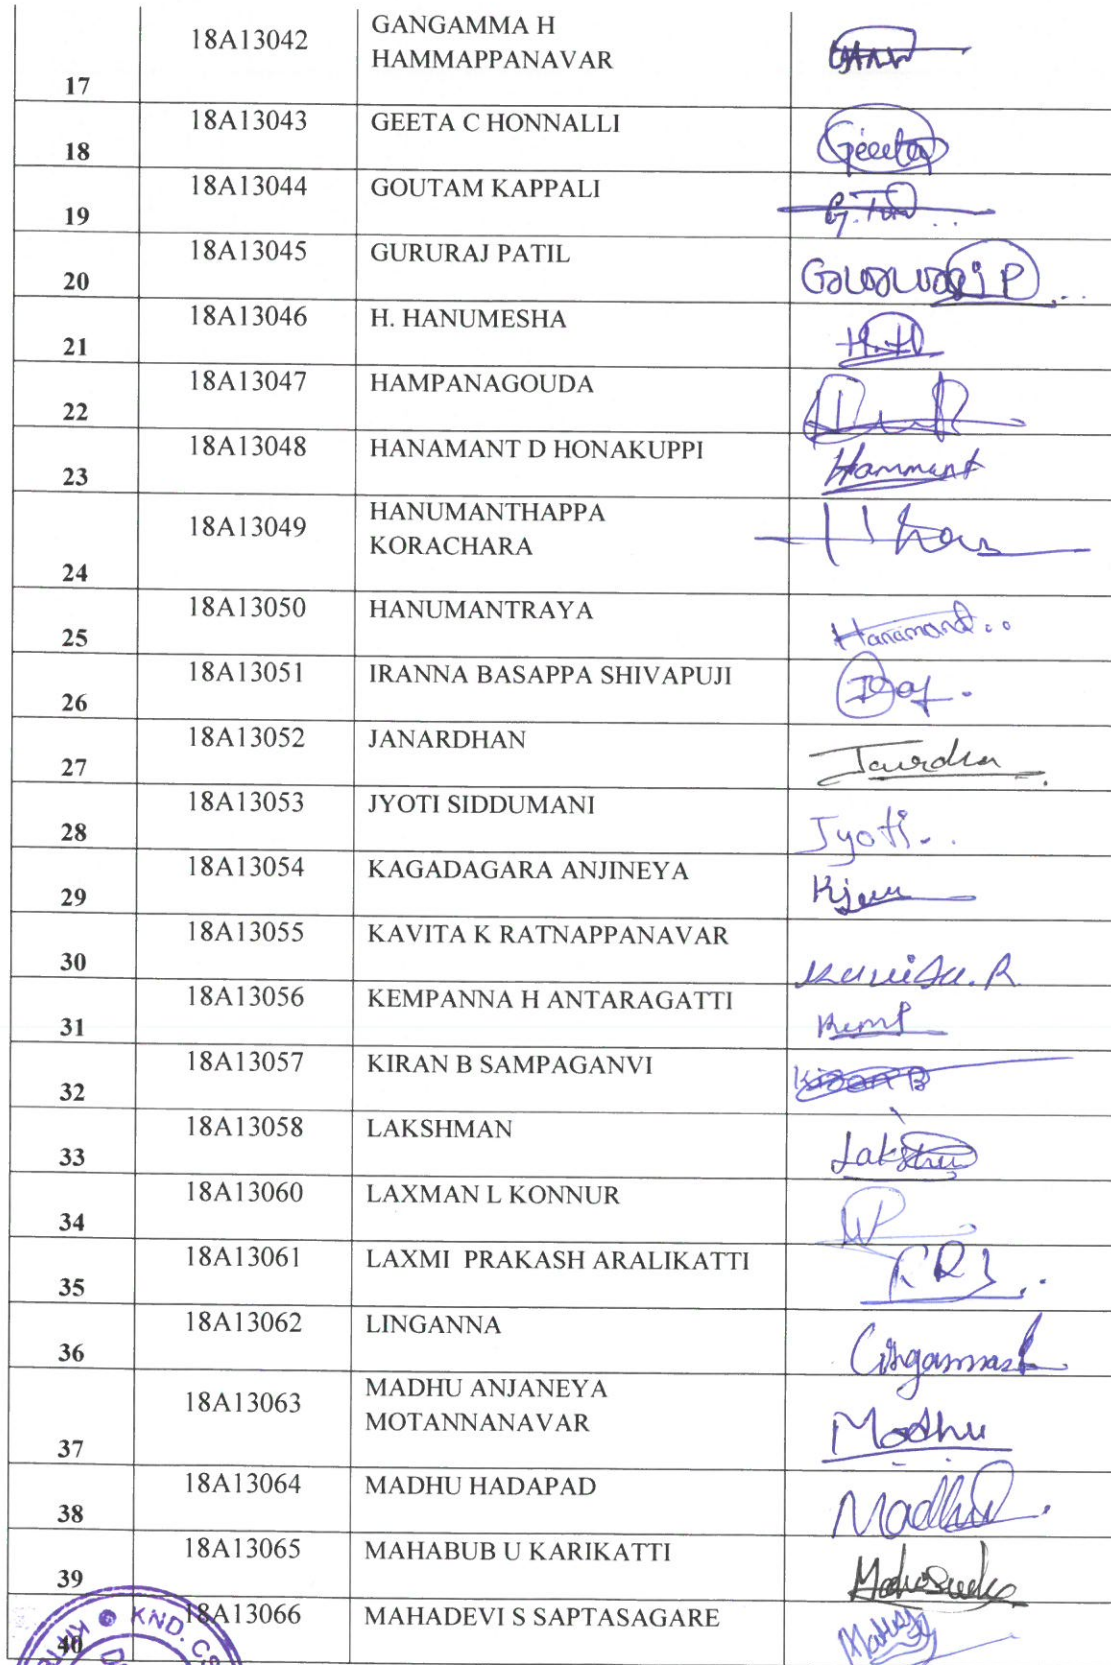 18A13042 GANGAMMA H
HAMMAPPANAVAR
17
18A13043 GEETA C HONNALLI Geeeta
18
18A13044 GOUTAM KAPPALI
19
18A13045 GURURAJ PATIL
20
18A13046 H. HANUMESHA H.H
21
18A13047 HAMPANAGOUDA
22
18A13048 HANAMANT D HONAKUPPI Hammant
23
HANUMANTHAPPA
18A13049
KORACHARA
24
18A13050 HANUMANTRAYA Hanamand..
25
18A13051 IRANNA BASAPPA SHIVAPUJI
26
18A13052 JANARDHAN
27
18A13053 JYOTI SIDDUMANI Jyoti..
28
18A13054 KAGADAGARA ANJINEYA
29
18A13055 KAVITA K RATNAPPANAVAR
30
18A13056 KEMPANNA H ANTARAGATTI
31
18A13057 KIRAN B SAMPAGANVI Kiran B
32
18A13058 LAKSHMAN
33
18A13060 LAXMAN L KONNUR
34
18A13061 LAXMI PRAKASH ARALIKATTI
35
18A13062 LINGANNA
36
MADHU ANJANEYA
18A13063
MOTANNANAVAR Madhu
37
18A13064 MADHU HADAPAD Madhu
38
18A13065 MAHABUB U KARIKATTI
39
18A13066 MAHADEVI S SAPTASAGARE
40
KND. C